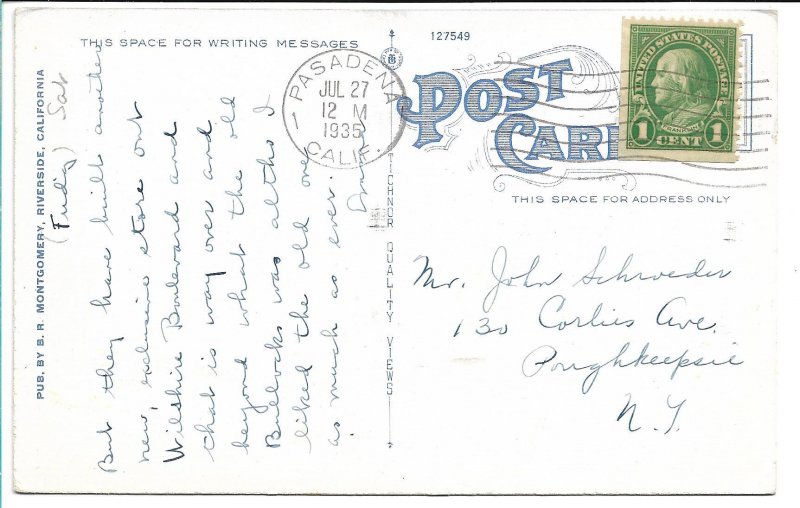 THIS SPACE FOR WRITING MESSAGES
127549
PUB. BY B. R. MONTGOMERY, RIVERSIDE, CALIFORNIA
Sat
But they have built another
new, exclusive store out
Wilshire Boulevard and
that is way over and
beyond what the old
Bullocks was altho I
liked the old one
as much as ever.
PASADENA
JUL 27
12 M
1935
CALIF.
TICHNOR QUALITY VIEWS
POST
CARD
UNITED STATES POSTAGE
FRANKLIN
1 CENT 1
THIS SPACE FOR ADDRESS ONLY
Mr. John Schroeder
130 Corlies Ave.
Poughkeepsie
N.Y.